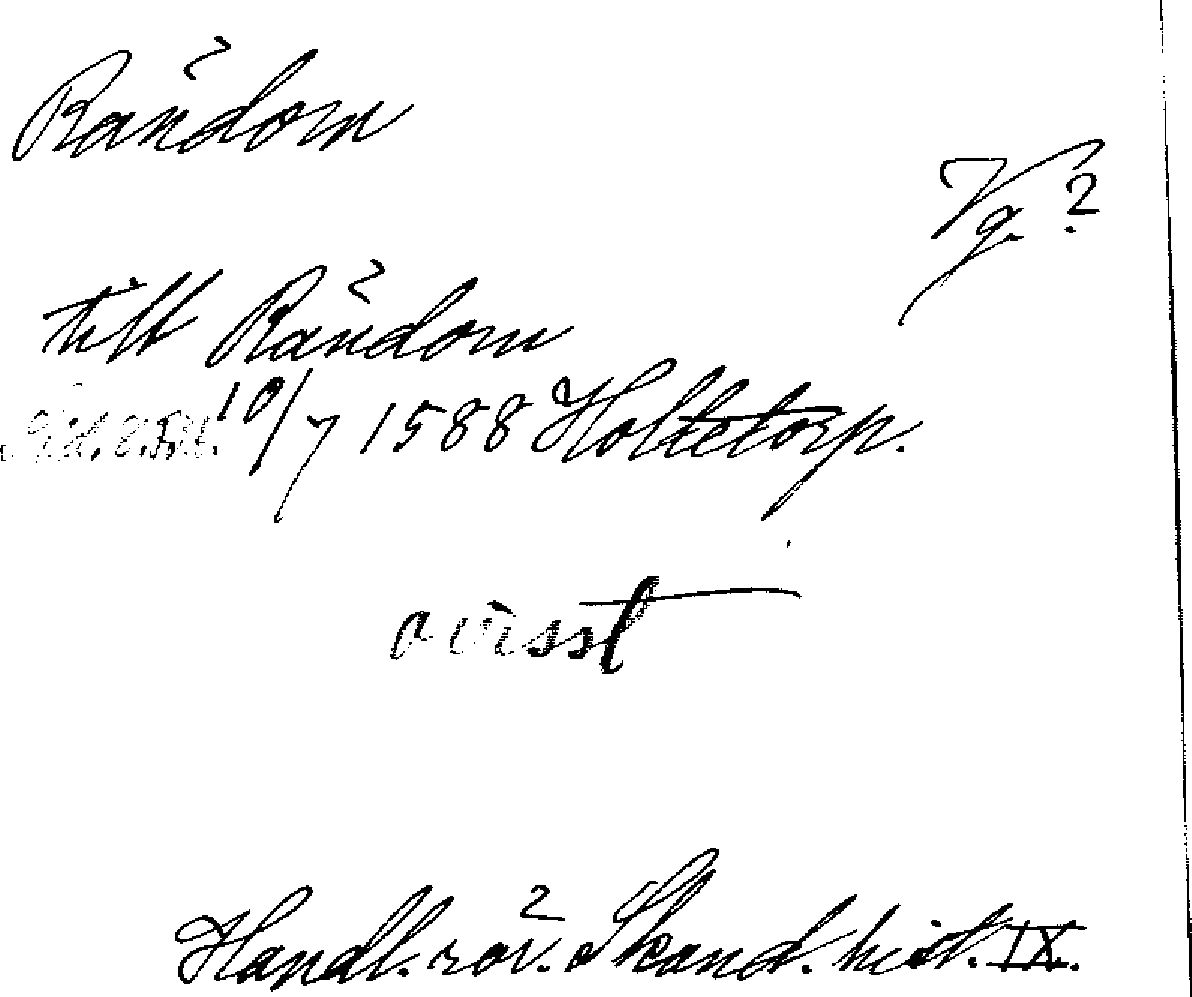 Rändom
Vg. ?
till Rändom
10/7 1588 Holtetorp.
ovisst
Handl. rör. Skand. hist. IX.